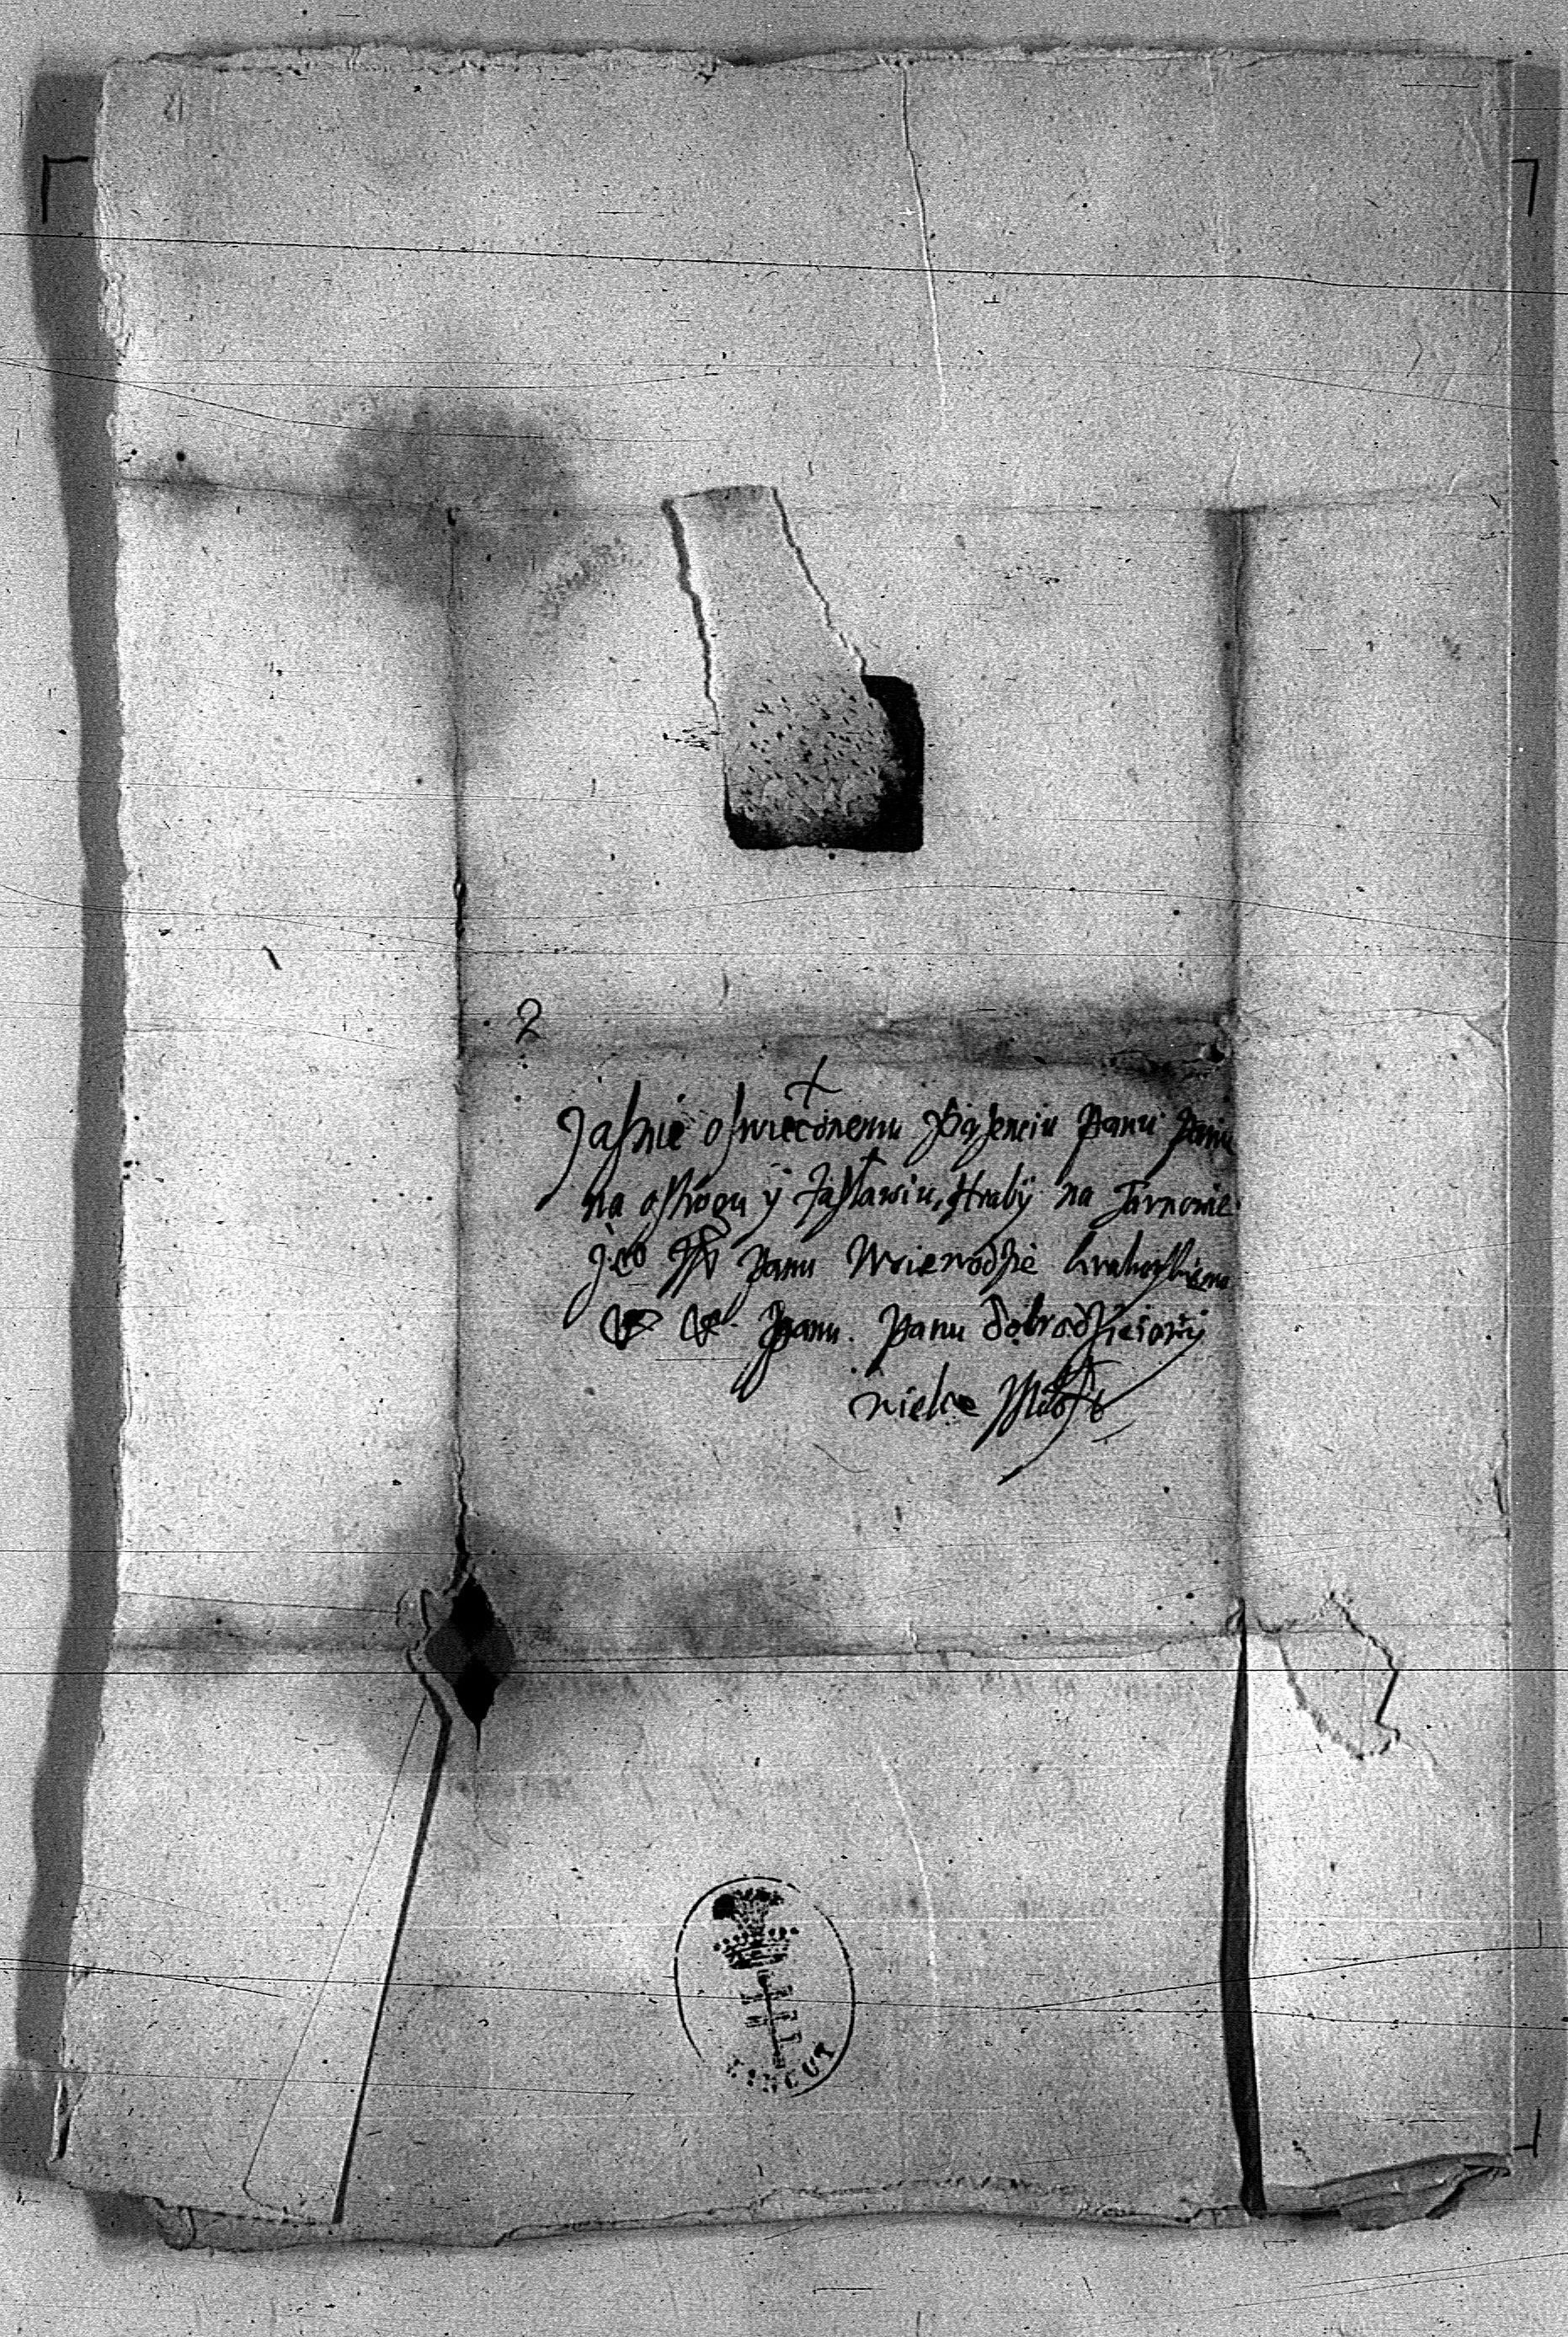 2
Jaśnie oświeconemu Xiążenciu Panu Panu
na ostrogu ÿ Zasławiu, Hrabÿ na Tarnowie
Jeo Panu Woiewodzie krakowskiemu
Panu. Panu dobrodzieiowÿ
milos
ŁAŃCUT